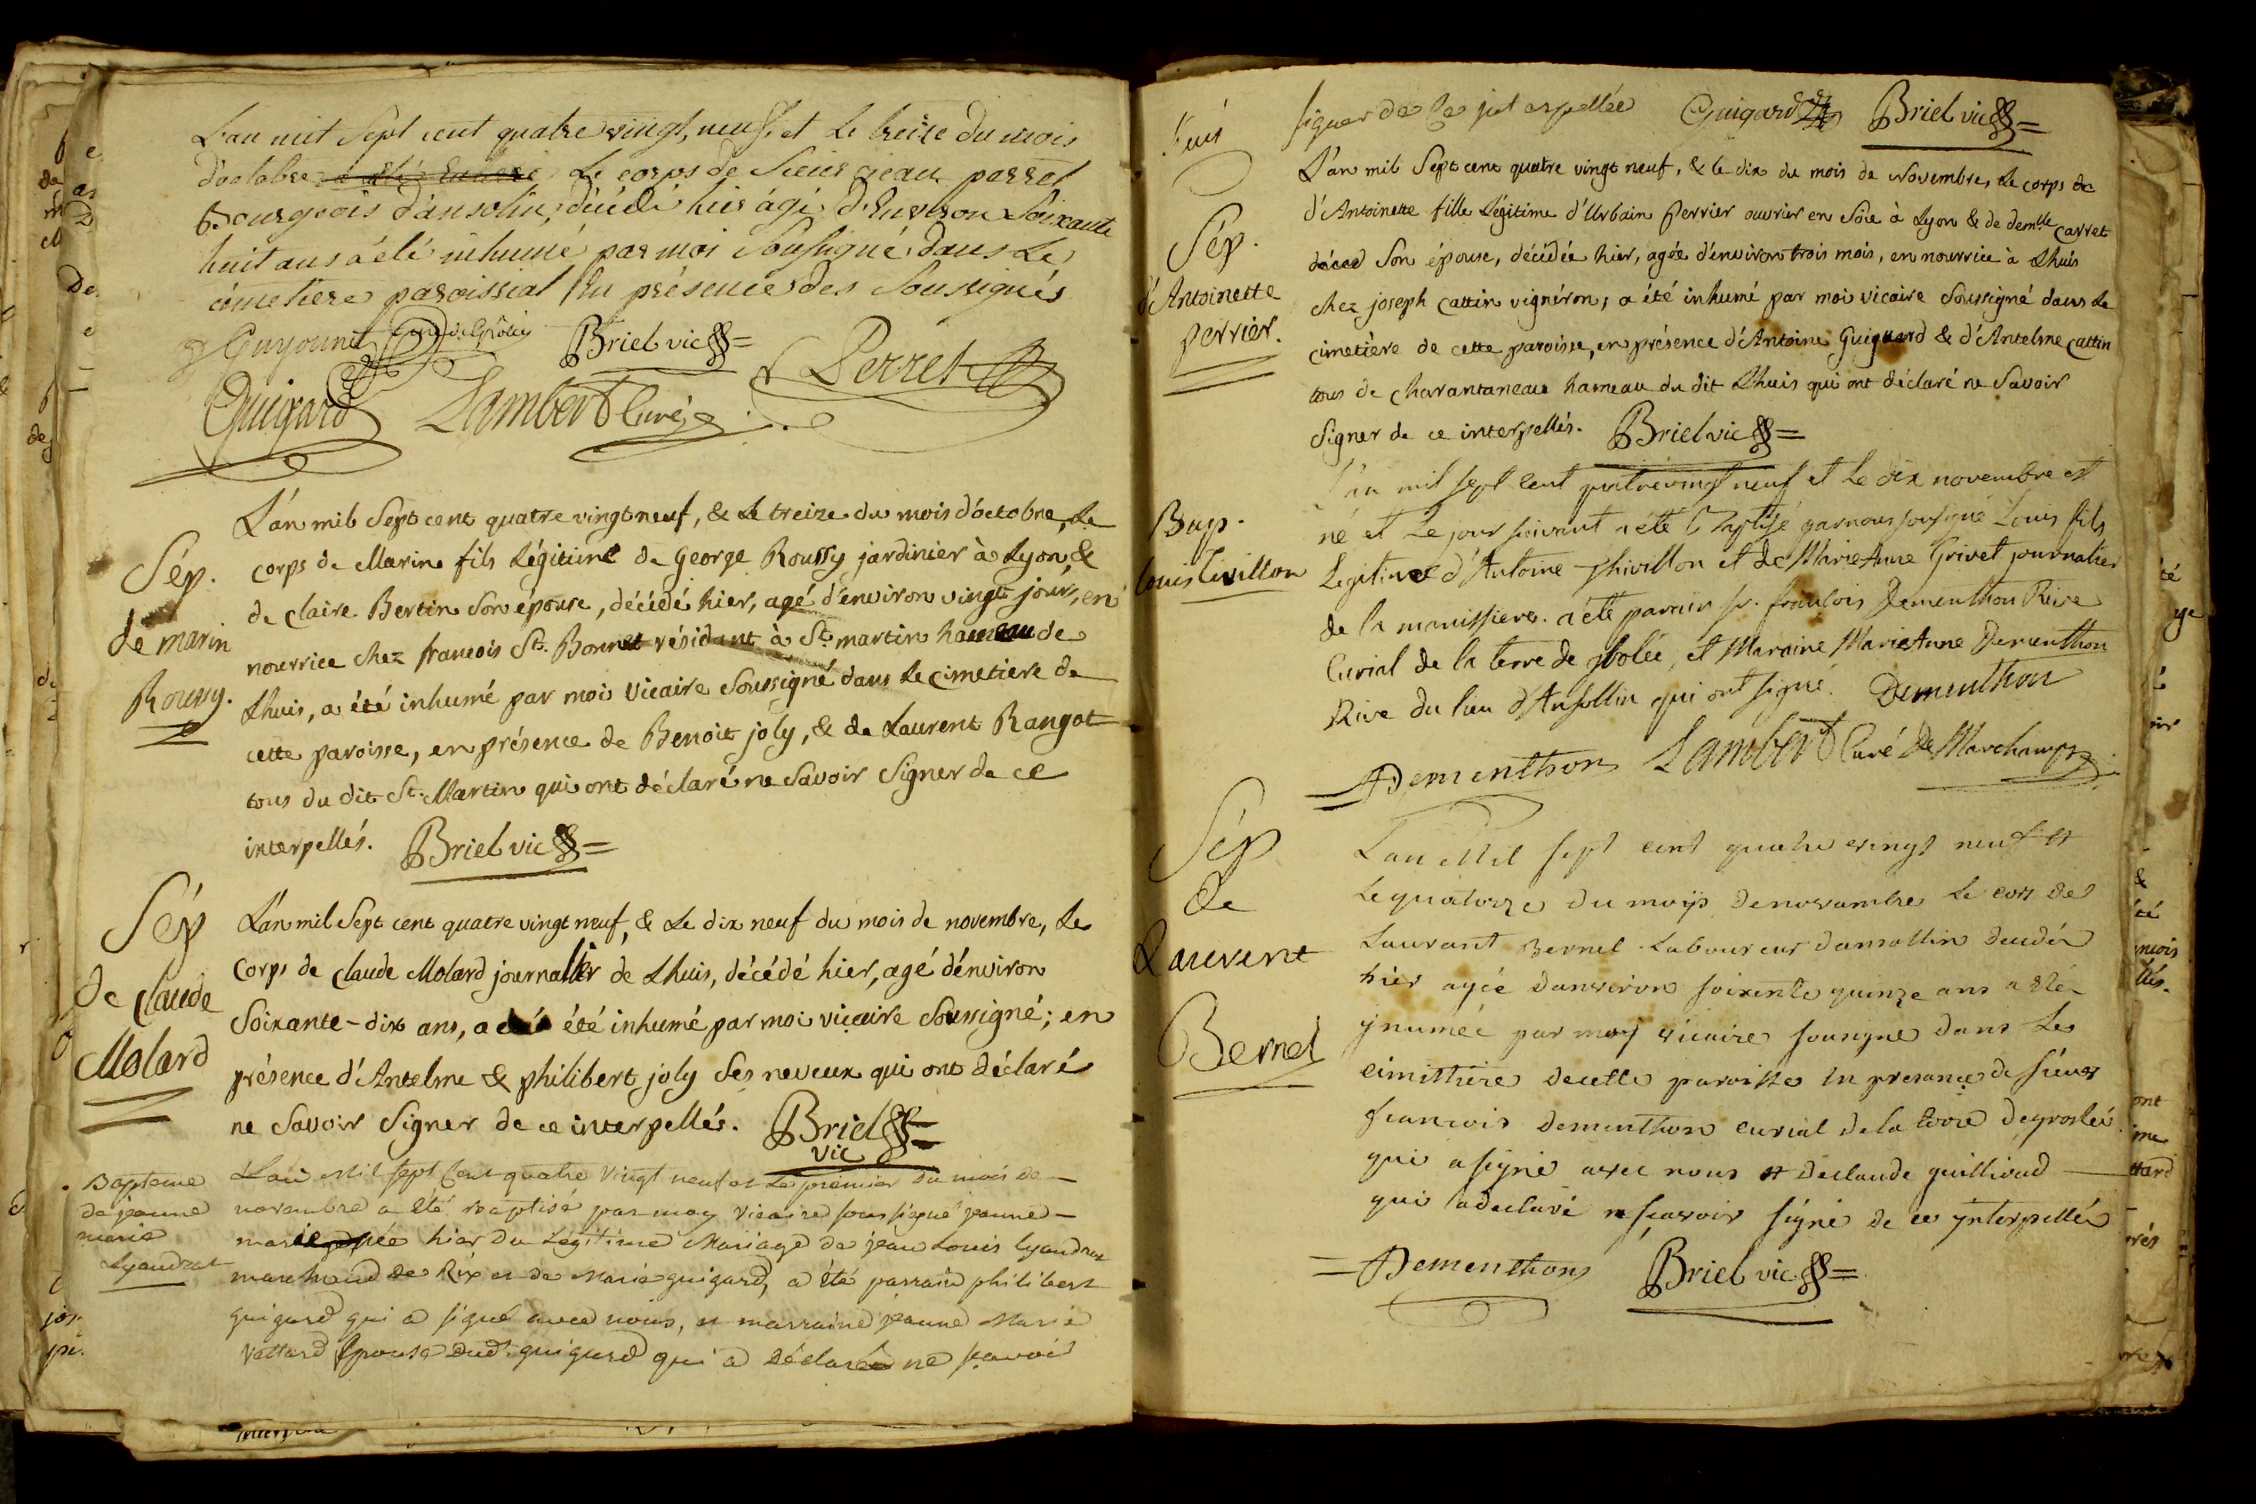 L'an mil Sept cent quatre vingt neuf, et Le treize du mois
d'octobre Le corps de Sieur jean perret
Bourgeois d'ansolin, décédé hier âgé d'Environ Soixante
huit ans a été inhumé par moi Soussigné dans Le
cimetiere paroissial En présence des Soussignés
Guyonnet Briel vic
Perret
Guigard Lambert Curé
Sép.
de marin
Roussy.
L'an mil Sept cent quatre vingt neuf, & Le treize du mois d'octobre, Le
corps de Marin fils Légitime de George Roussy jardinier à Lyon, &
de Claire Bertin Son épouse, décédé hier, agé d'environ vingt jours, en
nourrice chez francois St. Bonnet résidant à St. martin hameau de
Lhuis, a été inhumé par moi Vicaire Soussigné dans Le cimetiere de
cette paroisse, en présence de Benoit joly, & de Laurent Rangot
tous du dit St. Martin qui ont déclaré ne Savoir Signer de ce
interpellés. Briel vic
Sép
de Claude
Molard
L'an mil Sept cent quatre vingt neuf, & Le dix neuf du mois de novembre, Le
Corps de Claude Molard journallier de Lhuis, décédé hier, agé d'environ
Soixante-dix ans, a été inhumé par moi vicaire Soussigné; en
présence d'Antelme & philibert joly Ses neveux qui ont déclaré
ne Savoir Signer de ce interpellés. Briel
vic
Bapteme
de jeanne
marie
Lyaudrat
L'an Mil sept Cent quatre Vingt neuf et Le premier du mois de
novembre a été baptisé par moy Vicaire soussigné jeanne
marie née hier du Légitime Mariage de jean Louis lyaudrat
marchand de Rix et de Marie guigard, a été parrain philibert
guigard qui a signé avec nous, et marraine jeanne Marie
Vettard Epouse dud. guigard qui a déclaré ne sçavoir
signer de Ce Guigard Briel vic
Sép.
d'Antoinette
perrier.
L'an mil Sept cent quatre vingt neuf, & le dix du mois de Novembre, Le corps de
d'Antoinette fille Légitime d'Urbain Perrier ouvrier en Soie à Lyon & de demlle Carret
Son épouse, décédée hier, agée d'environ trois mois, en nourrice à Lhuis
chez joseph Cattin vignéron, a été inhumé par moi vicaire Soussigné dans Le
cimetière de cette paroisse, en présence d'Antoine Guiguard & d'Antelme Cattin
tous de Charantaneau hameau du dit Lhuis qui ont déclaré ne Savoir
Signer de ce interpellés. Briel vic
Bap.
Louis tivillon
L'an mil sept cent quatrevingt neuf et Le dix novembre est
né et Le jour suivant a été Baptisé par nous sousigné Louis fils
Legitime d'Antoine thivillon et de Marie Anne Grivet journalier
de la manissiere. a été parrain Sr. francois Dementhon Rive
Curial de la terre de grolée, et Maraine Marie Anne Dementhon
Rive du lieu d'Ansollin qui ont signé. Dementhon
Dementhon Lambert Curé De Marchamps
Sép
de
Laurent
Bernet
L'an Mil sept cent quatre vingt neuf et
Le quatorze du moys de novambre Le cors de
Laurant Bernet Laboureur dansollin decédé
hier agée danviron soixente quinze ans a été
ynumée par moy vicaire sousigné dans Le
cimittiere de cette paroisse En presance de sieur
francois Dementhon curial de la terre de groslée
qui a signé avec nous et de claude guilliaud
qui a declaré ne scavoir signé de ce ynterpellée
Dementhon Briel vic